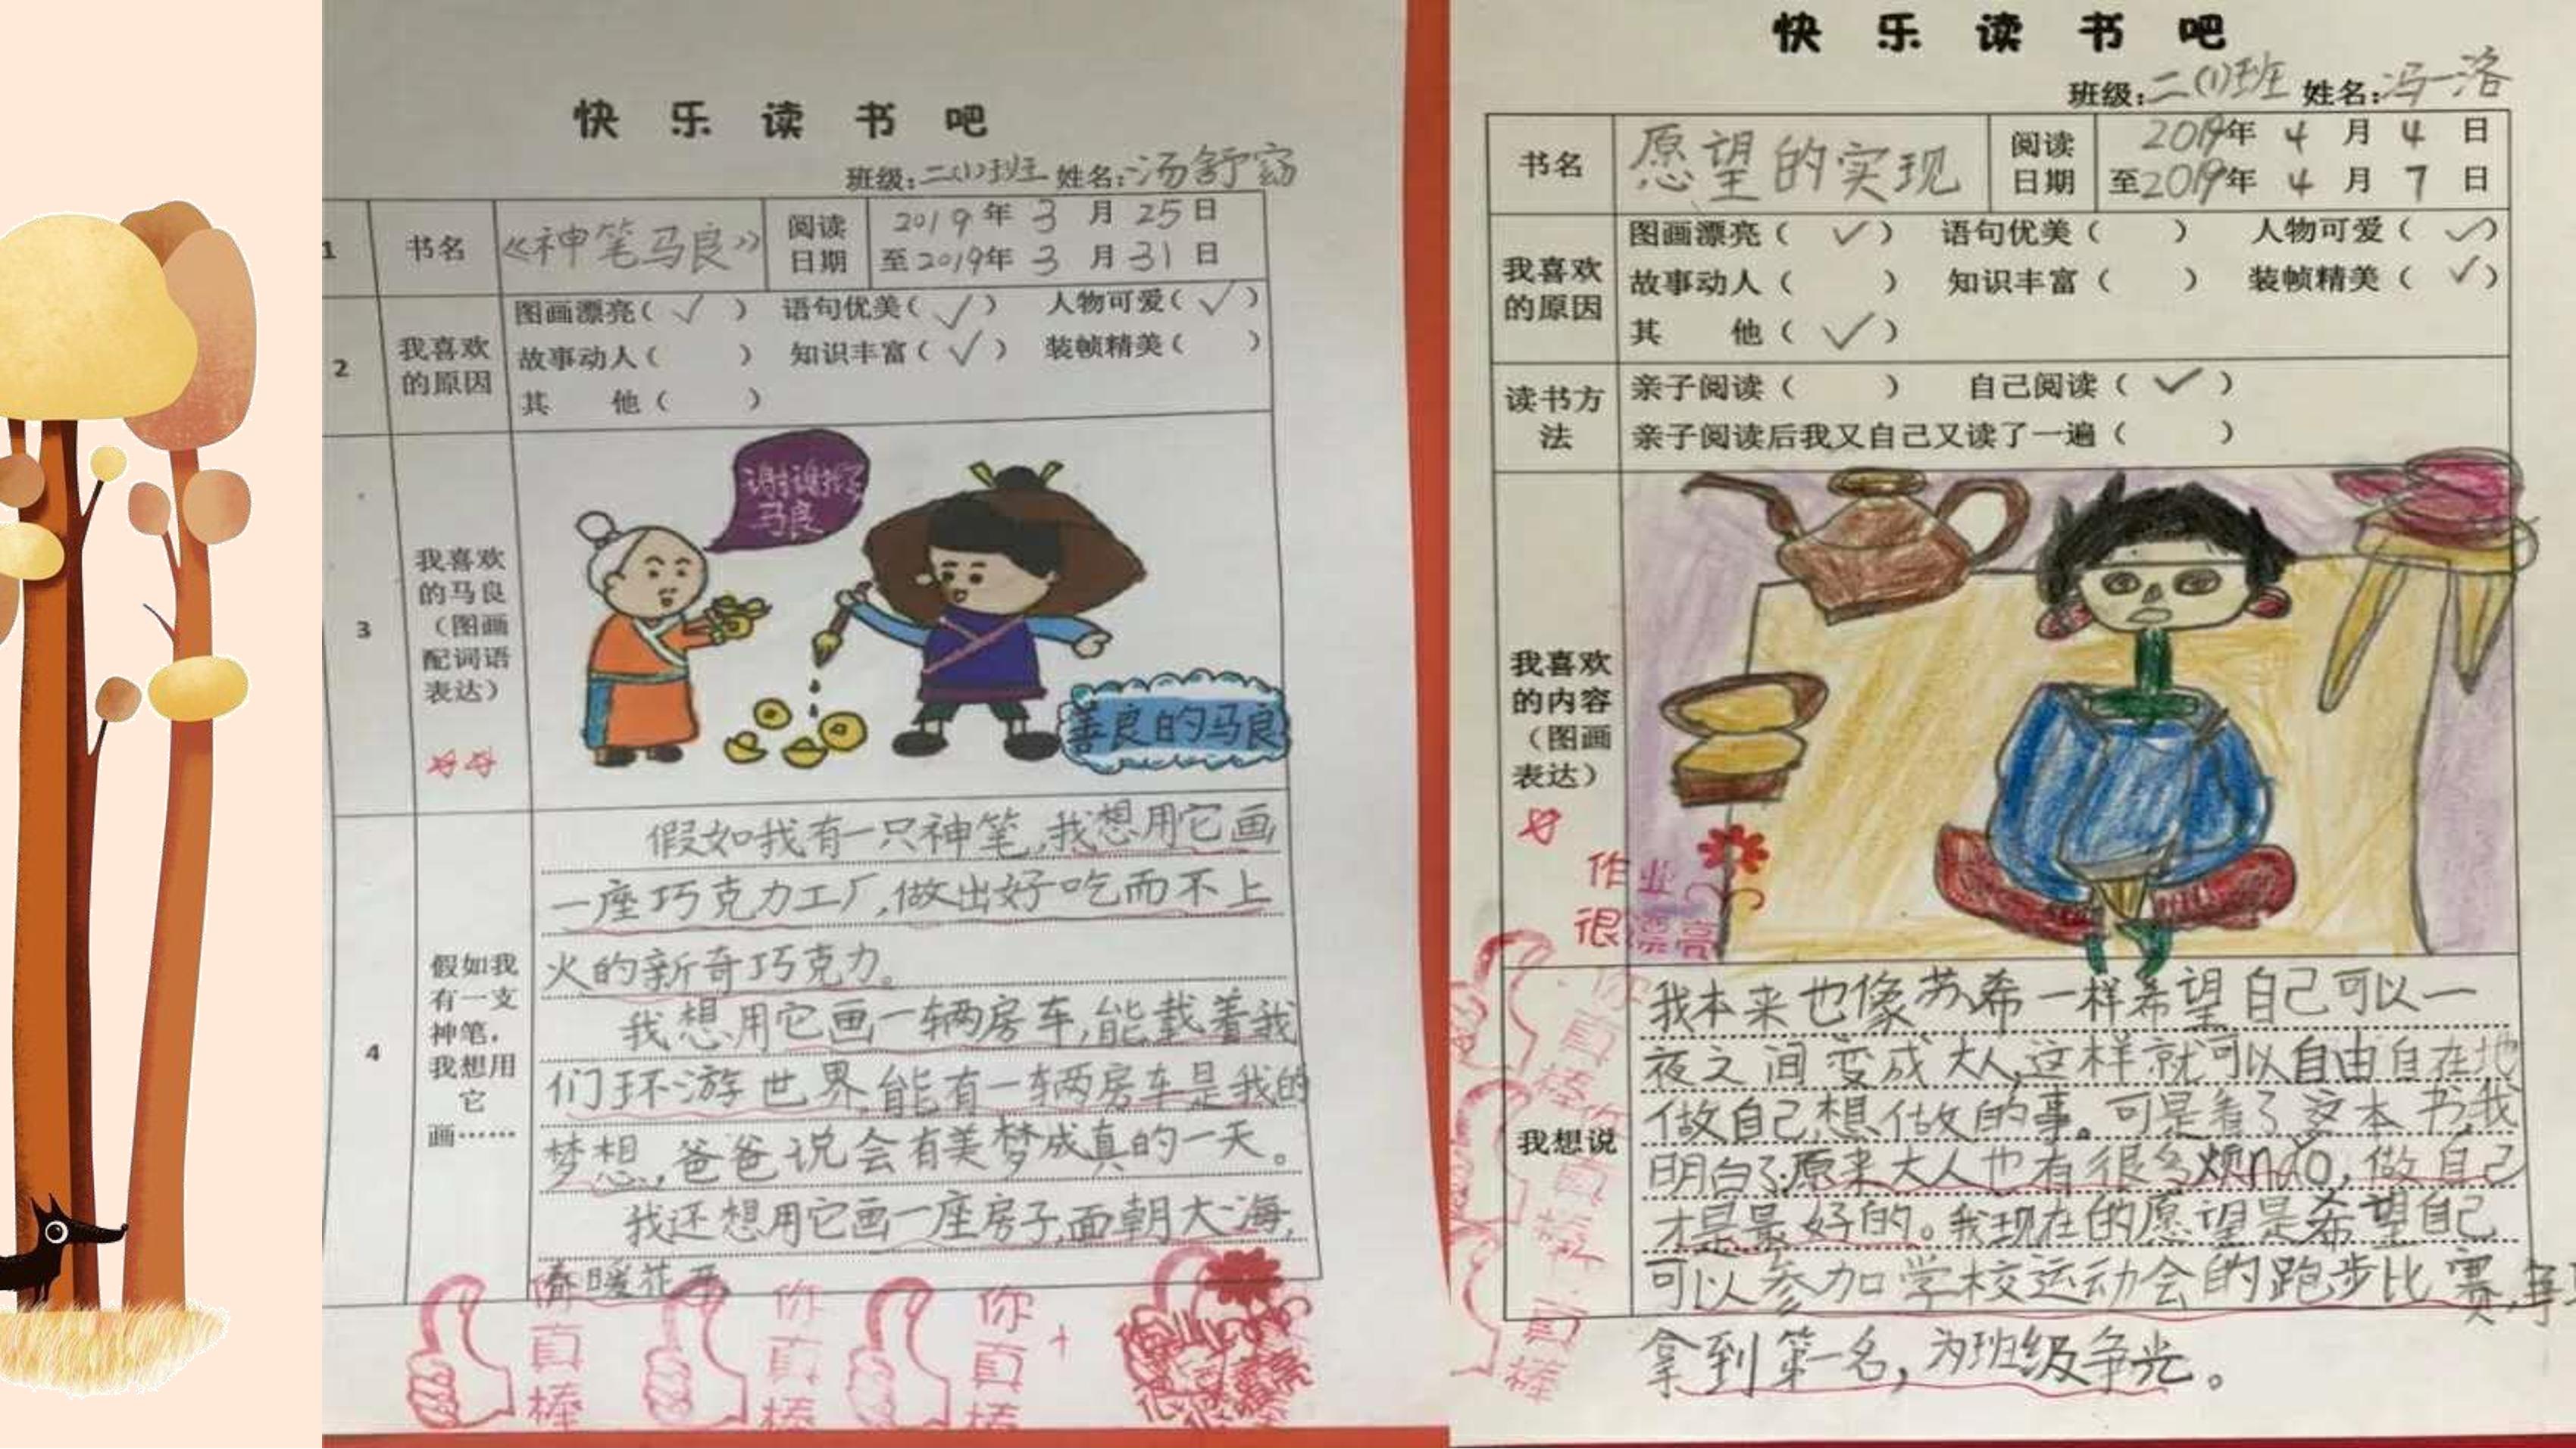 快 乐 读 书 吧
班级:二(1)班 姓名:汤舒窈
1 书名 《神笔马良》 阅读日期 2019年 3 月 25日
至2019年 3 月 31 日
2 我喜欢的原因 图画漂亮( ✓ ) 语句优美( ✓ ) 人物可爱( ✓ )
故事动人( ) 知识丰富( ✓ ) 装帧精美( )
其 他( )
3 我喜欢
的马良
(图画
配词语
表达)
谢谢你
马良
善良的马良
4 假如我
有一支
神笔,
我想用
它
画……
假如我有一只神笔,我想用它画
一座巧克力工厂,做出好吃而不上
火的新奇巧克力。
我想用它画一辆房车,能载着我
们环游世界,能有一辆房车是我的
梦想,爸爸说会有美梦成真的一天。
我还想用它画一座房子,面朝大海,
春暖花开
你真棒
你真棒
你真棒
+
快 乐 读 书 吧
班级:二(1)班 姓名:冯一洛
书名 愿望的实现 阅读日期 2019年 4 月 4 日
至2019年 4 月 7 日
我喜欢的原因 图画漂亮( ✓ ) 语句优美( ) 人物可爱( ✓ )
故事动人( ) 知识丰富( ) 装帧精美( ✓ )
其 他( ✓ )
读书方法 亲子阅读( ) 自己阅读( ✓ )
亲子阅读后我又自己又读了一遍( )
我喜欢
的内容
(图画
表达)
作业
很漂亮
你真棒
你真棒
真棒
我想说
我本来也像苏希一样希望自己可以一
夜之间变成大人,这样就可以自由自在地
做自己想做的事。可是看了这本书,我
明白了原来大人也有很多烦nǎo,做自己
才是最好的。我现在的愿望是希望自己
可以参加学校运动会的跑步比赛,
拿到第一名,为班级争光。